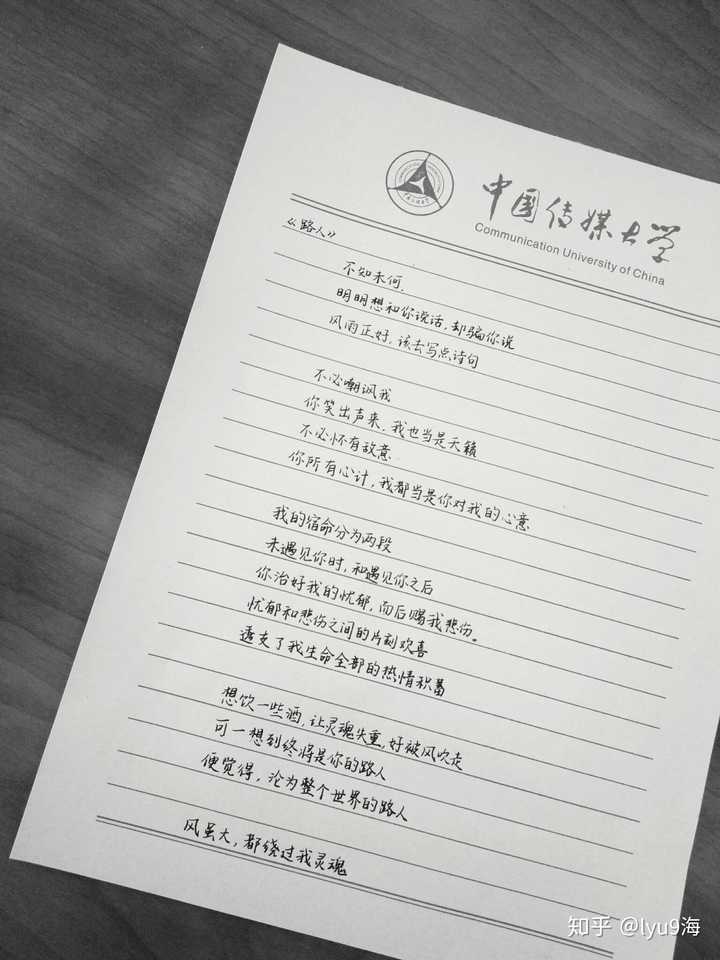 中国传媒大学
Communication University of China
《路人》
不知未何,
明明想和你说话,却骗你说
风雨正好,该去写点诗句
不必嘲讽我
你笑出声来,我也当是天籁
不必怀有敌意
你所有心计,我都当是你对我的心意
我的宿命分为两段
未遇见你时,和遇见你之后
你治好我的忧郁,而后赐我悲伤。
忧郁和悲伤之间的片刻欢喜
透支了我生命全部的热情积蓄
想饮一些酒,让灵魂失重,好被风吹走
可一想到终将是你的路人
便觉得,沦为整个世界的路人
风虽大,都绕过我灵魂
知乎 @lyu9海